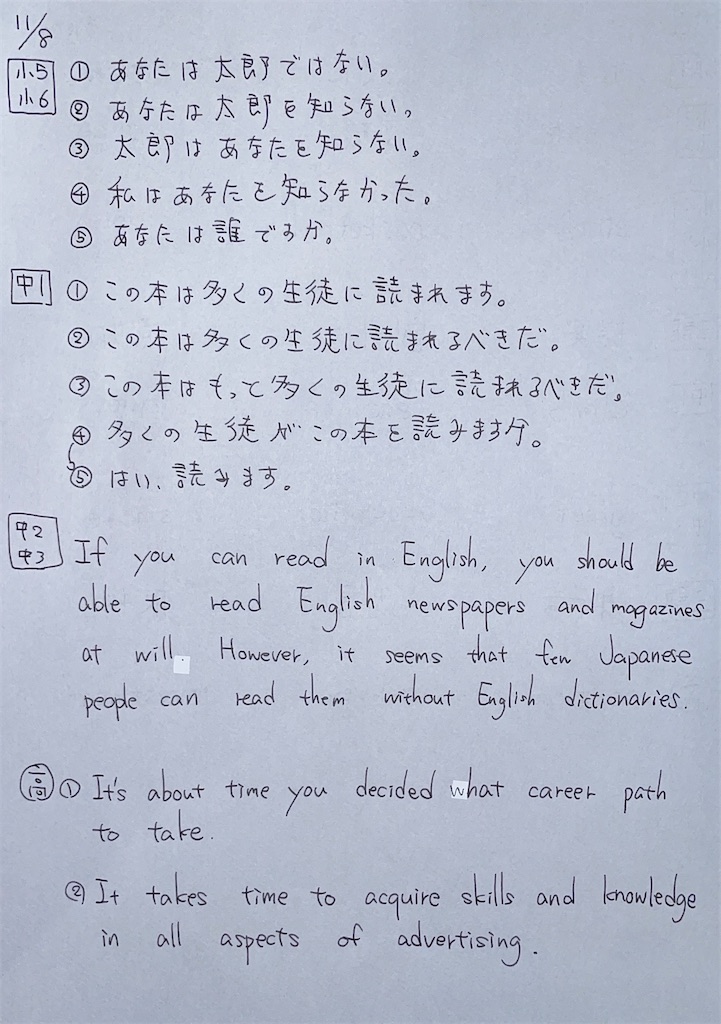 11/8
小5 ① あなたは太郎ではない。
小6 ② あなたは太郎を知らない。
③ 太郎はあなたを知らない。
④ 私はあなたを知らなかった。
⑤ あなたは誰ですか。
中1 ① この本は多くの生徒に読まれます。
② この本は多くの生徒に読まれるべきだ。
③ この本はもっと多くの生徒に読まれるべきだ。
④ 多くの生徒がこの本を読みますか。
⑤ はい、読みます。
中2 If you can read in English, you should be
中3 able to read English newspapers and magazines
at will. However, it seems that few Japanese
people can read them without English dictionaries.
高 ① It's about time you decided what career path
to take.
② It takes time to acquire skills and knowledge
in all aspects of advertising.